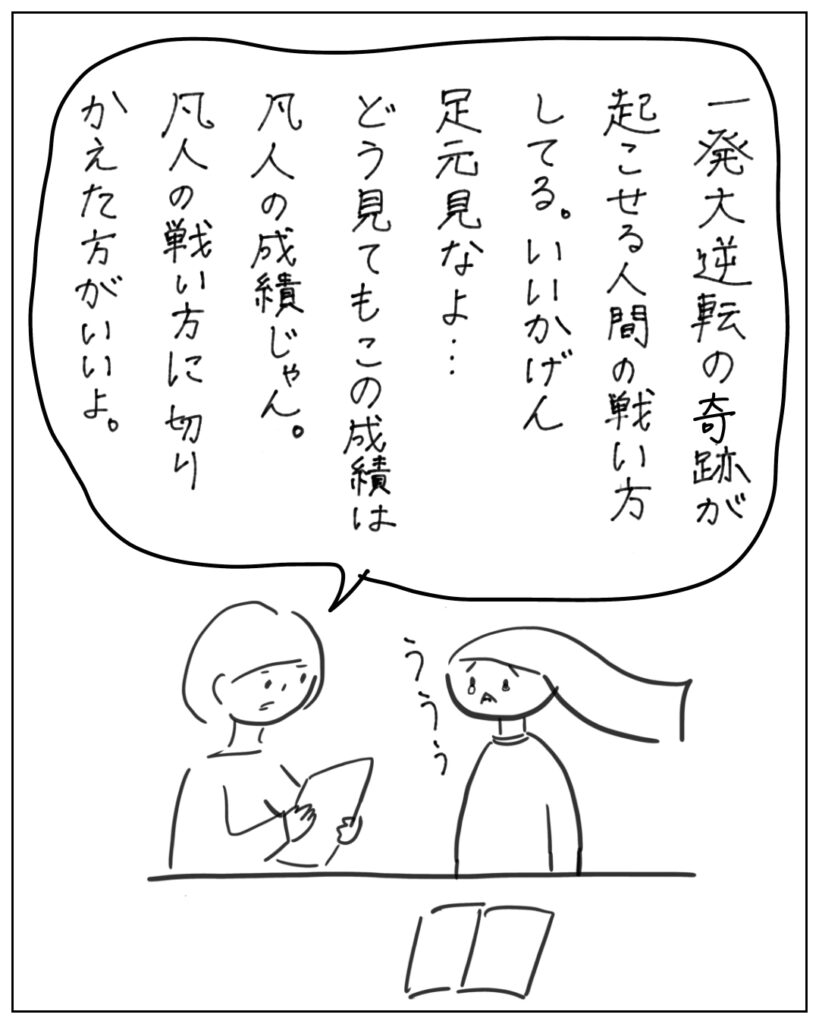 一発大逆転の奇跡が
起こせる人間の戦い方
してる。いいかげん
足元見なよ…
どう見てもこの成績は
凡人の成績じゃん。
凡人の戦い方に切り
かえた方がいいよ。
ううぅ